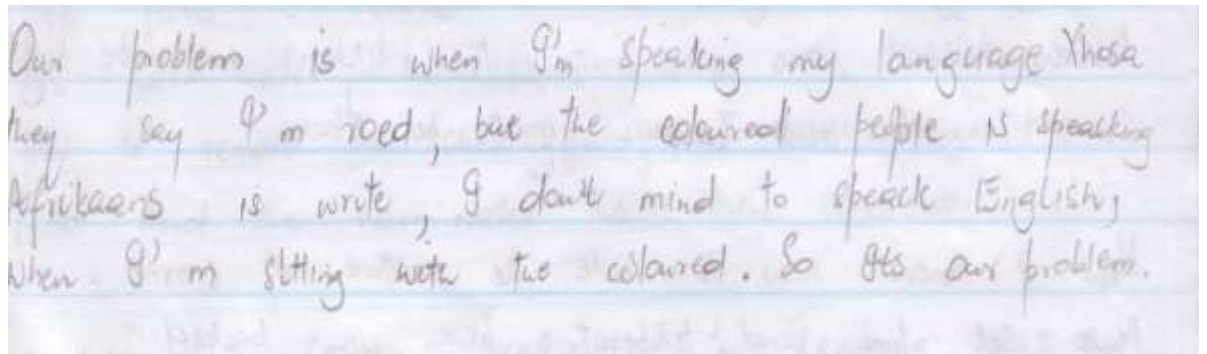 Our problem is when I'm speaking my language Xhosa
they say I'm roed, but the coloured people is speacking
Afrikaans is write, I don't mind to speack English,
when I'm sitting with the coloured. So Its our problem.